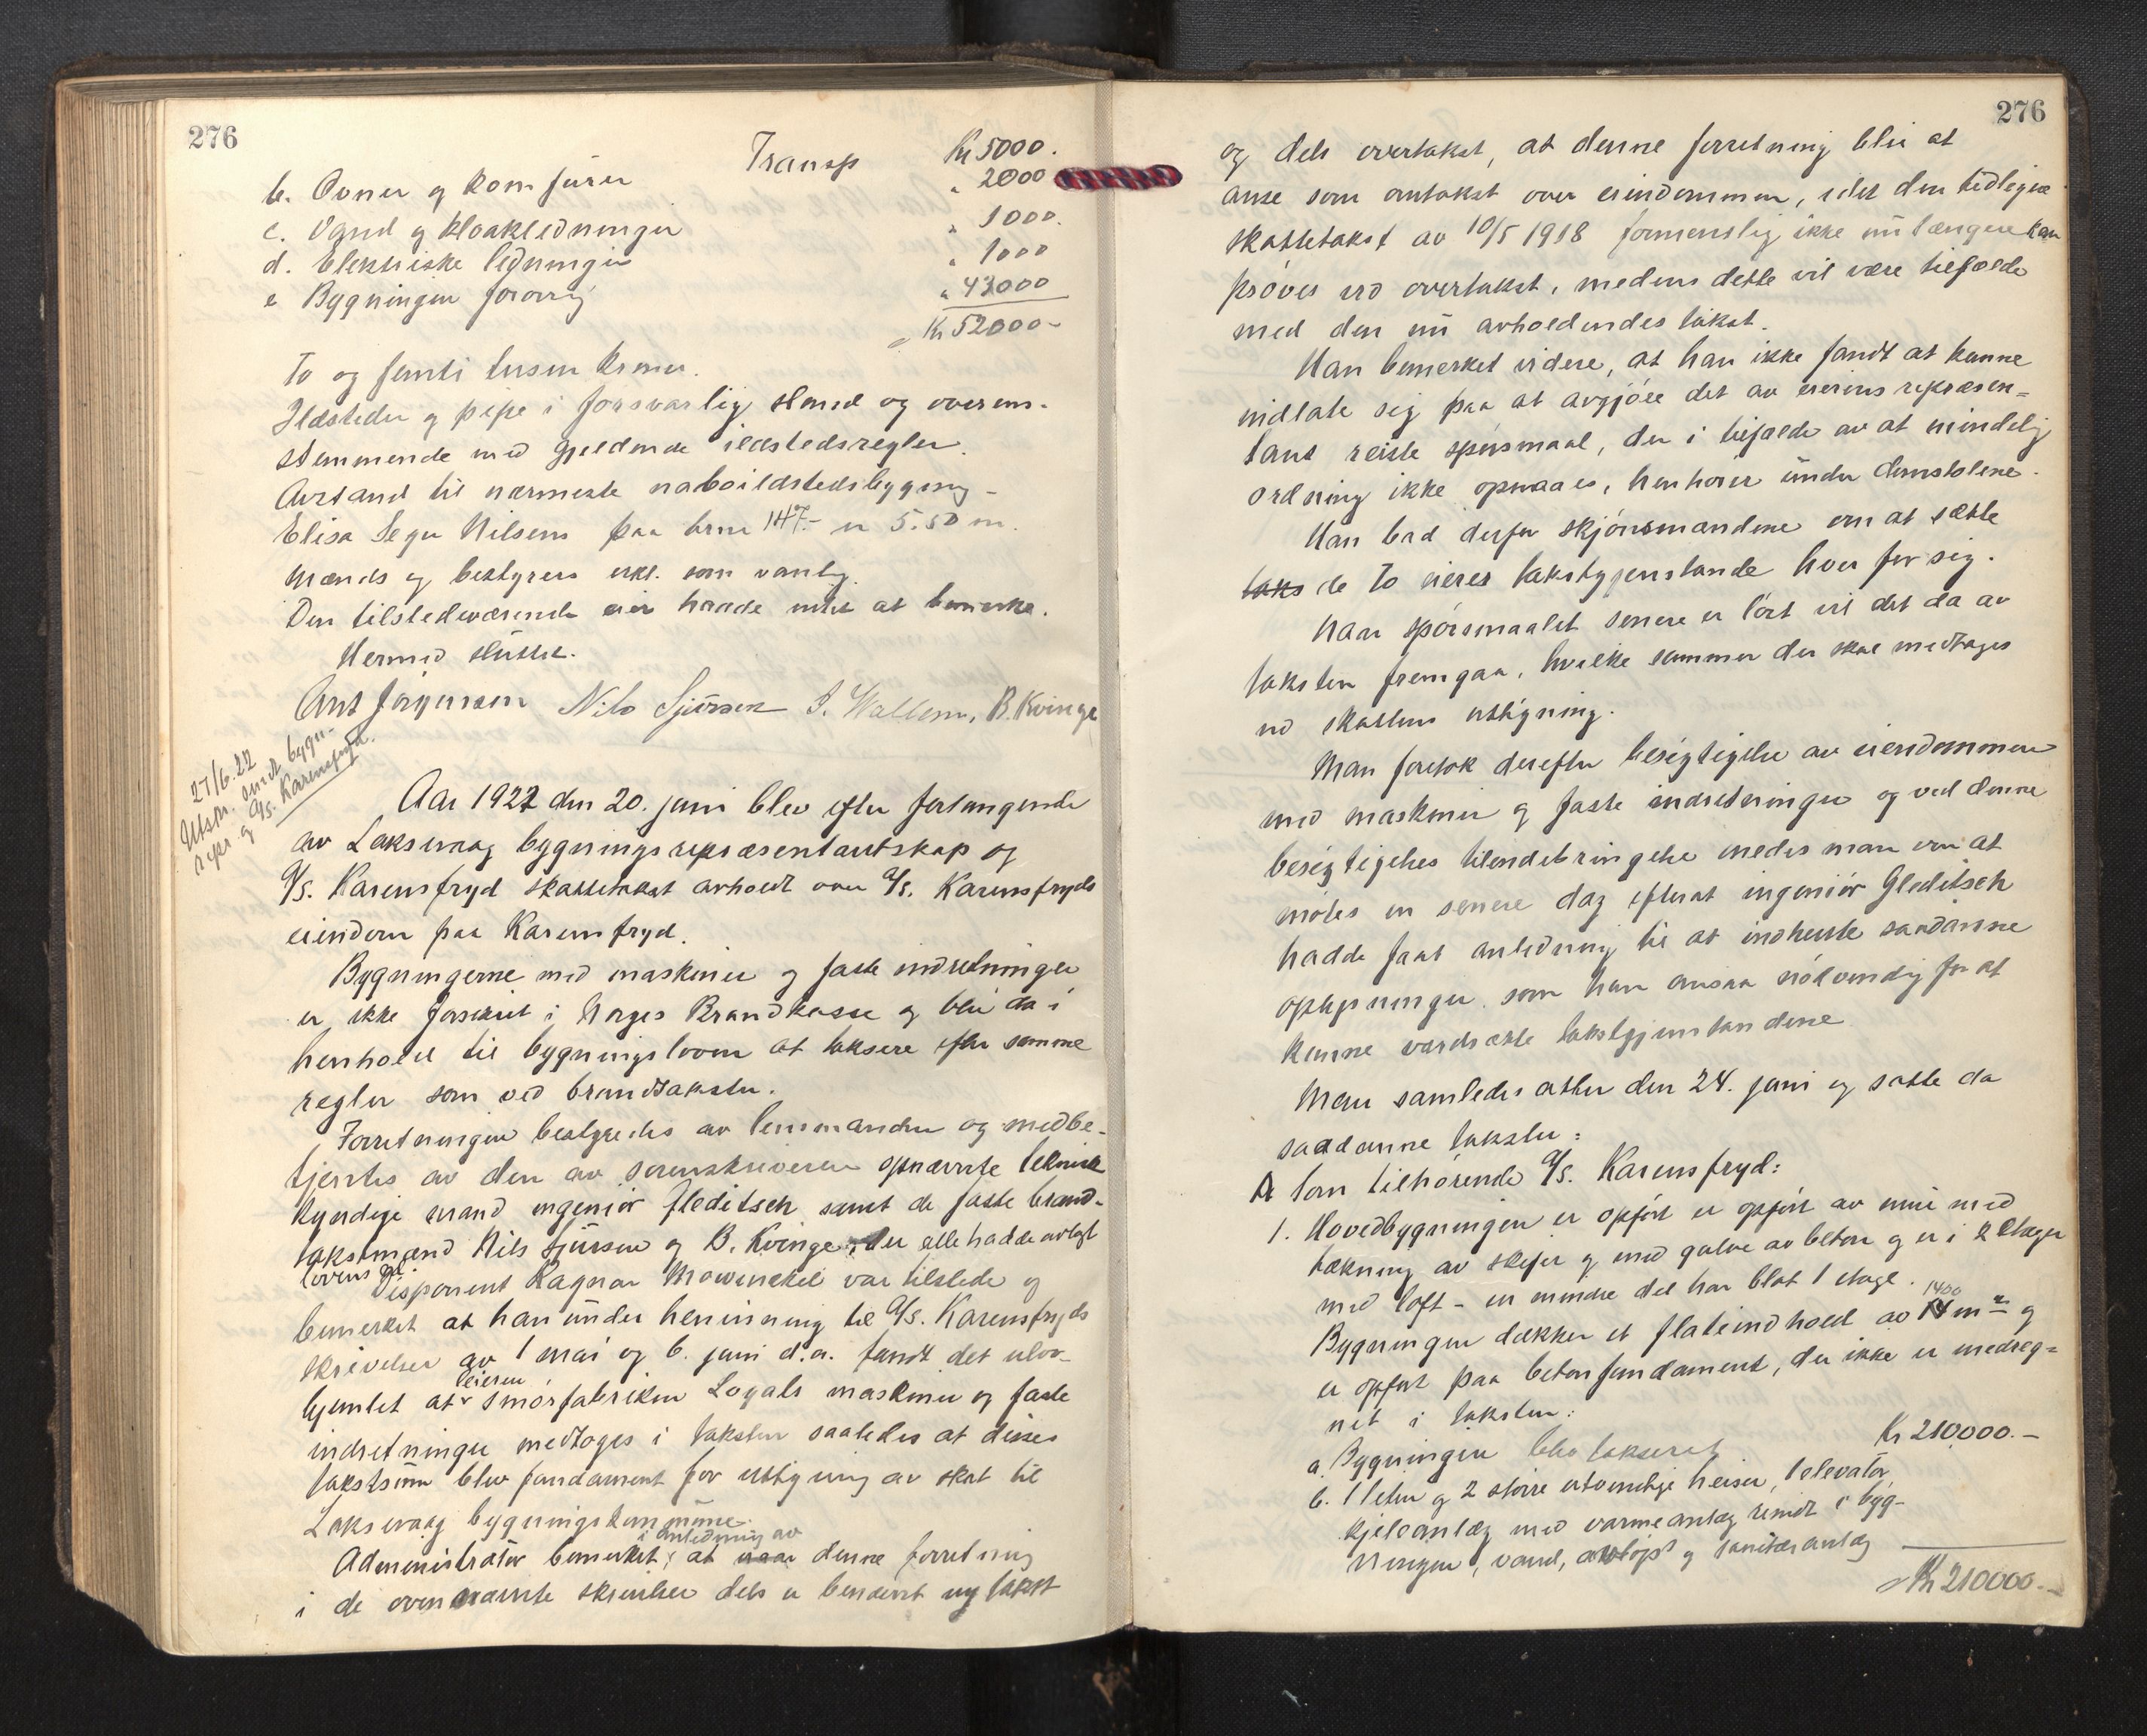 276
Transp Kr 5000.
b. Ovner og komfurer " 2000
c. Vand og kloakledninger " 1000.
d. Elektriske ledninger " 1000
e Bygningen forøvrig " 43000
Kr 52000-
To og femti tusen kroner.
Ildsteder og pipe i forsvarlig stand og overens-
stemmende med gjeldende ildstedsregler.
Avstand til nærmeste naboildstedsbygning -
Elisa Nilsens paa brnr 147.- er 5.50 m.
Mænds og bestyrers erkl. som vanlig.
Den tilstedeværende eier hadde intet at bemerke.
Hermed sluttet.
Ant Jørgensen Nils Sjursen I. Wallem, B. Kvinge
27/6.22
Utskr. sendt bygn-
repr og A/S. Karensfryd.
Aar 1922 den 20. juni blev efter forlangende
av Laksevaag bygningsrepræsentantskap og
A/S. Karensfryd skattetakst avholdt over A/S. Karensfryds
eiendom paa Karensfryd.
Bygningerne med maskiner og faste indretninger
er ikke forsikret i Norges Brandkasse og blir da i
henhold til bygningsloven at taksere efter samme
regler som ved brandtakster.
Forretningen bestyredes av lensmanden og medbe-
tjentes av den av sorenskriveren opnævnte teknisk
kyndige mand ingeniør Gleditsch samt de faste brand-
takstmænd Nils Sjursen og B. Kvinge, der alle hadde avlagt
lovens ed.
Disponent Ragnar Mowinckel var tilstede og
bemerket at han under henvisning til A/S. Karensfryds
skrivelser av 1 mai og 6. juni d.a. fandt det ulov-
hjemlet at eieren smørfabriken Loyals maskiner og faste
indretninger medtoges i taksten saaledes at disses
takstsum blev fundament for utligning av skat til
Laksevaag bygningskommune.
Administrator bemerket, at naar i anledning av denne forretning
i de ovennævnte skrivelser dels er benævnt ny takst
276
og dels overtakst, at denne forretning blir at
anse som omtakst over eiendommen, idet den tidligere
skattetakst av 10/5 1918 formentlig ikke nu længere kan
prøves ved overtakst, medens dette vil være tilfælde
med den nu avholdendes takst.
Han bemerket videre, at han ikke fandt at kunne
indlate sig paa at avgjøre det av eierens repræsen-
tant reiste spørsmaal, der i tilfælde av at mindelig
ordning ikke opnaaes, henhører under domstolene.
Han bad derfor skjønsmændene om at sætte
taks de to eieres takstgjenstande hver for sig.
Naar spørsmaalet senere er løst vil det da av
taksten fremgaa, hvilke summer der skal medtages
ved skattens utligning.
Man foretok derefter besigtigelse av eiendommen
med maskiner og faste indretninger og ved denne
besigtigelses tilendebringelse enedes man om at
møtes en senere dag efterat ingeniør Gleditsch
hadde faat anledning til at indhente saadanne
oplysninger som han ansaa nødvendig for at
kunne værdsætte takstgjenstandene
Man samledes atter den 24. juni og satte da
saadanne takster:
A Som tilhørende A/S. Karensfryd:
1. Hovedbygningen er opført er opført av mur med
tækning av skifer og med gulve av beton og er i 2 etager
med loft - en mindre del har blot 1 etage.
Bygningen dækker et flateindhold av 14 1400 m² og
er opført paa betonfundament, der ikke er medreg-
net i taksten:
a. Bygningen blev taksert Kr 210,000.-
b. 1 liten og 2 større utvendige heiser, 1 elevator,
kjelanlæg med varmeanlæg rundt i byg-
ningen, vand, avløps og sanitæranlæg
Kr 210000.-